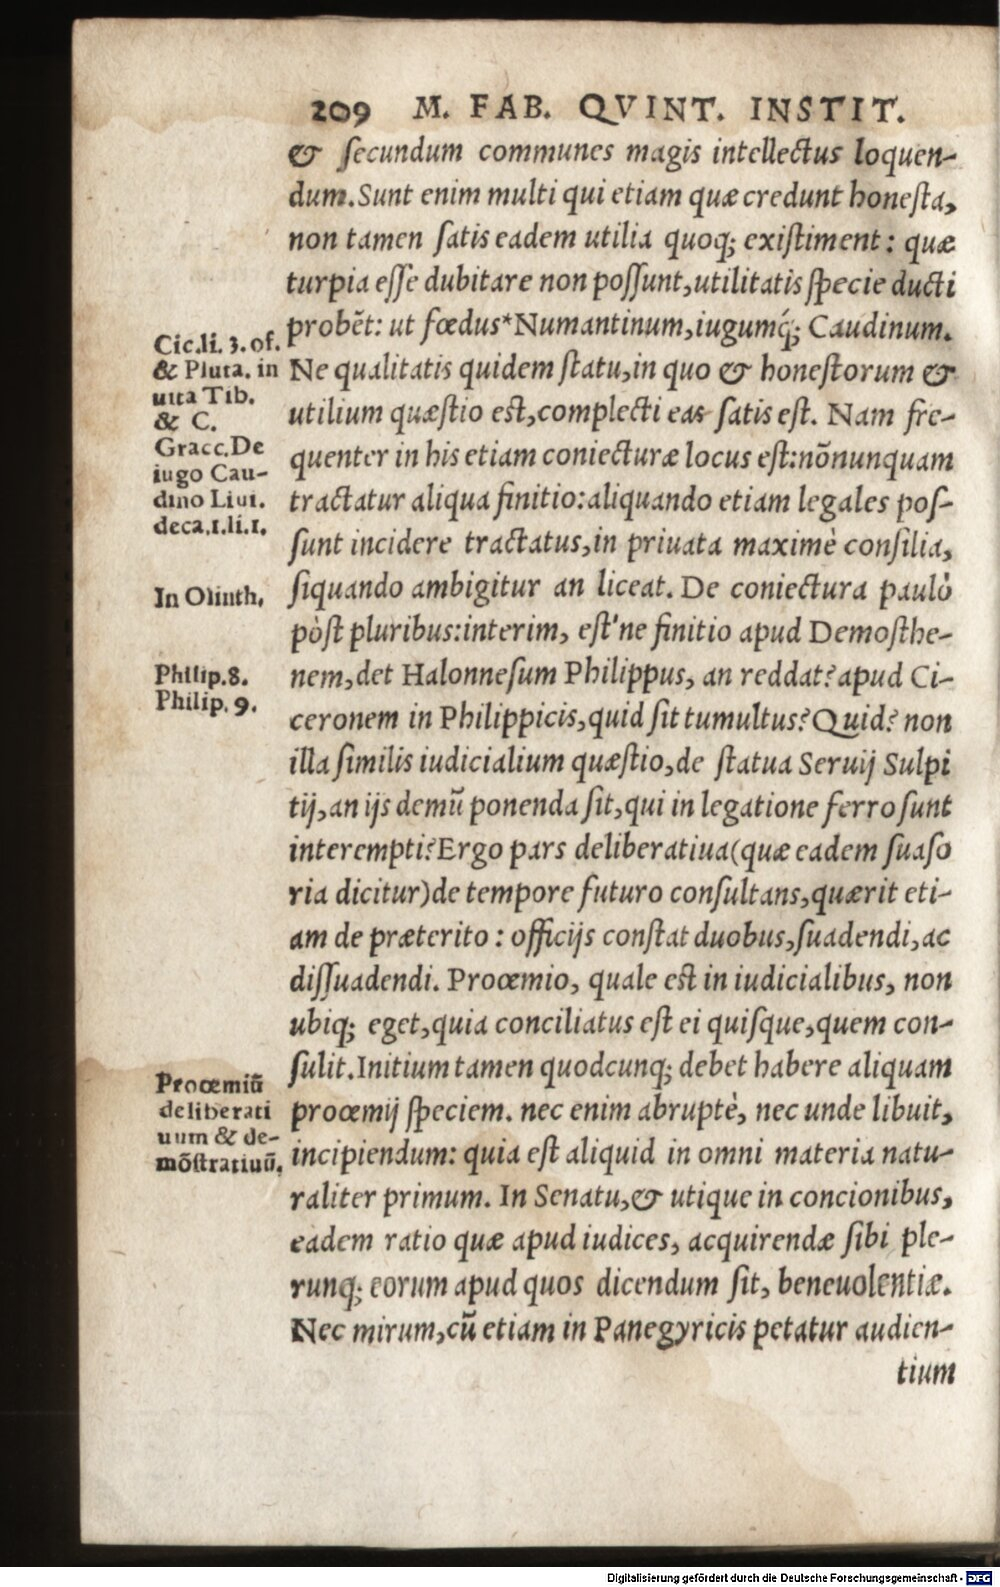 209 M. FAB. QVINT. INSTIT.
& ſecundum communes magis intellectus loquen-
dum. Sunt enim multi qui etiam quæ credunt honeſta,
non tamen ſatis eadem utilia quoq; exiſtiment: quæ
turpia eſſe dubitare non poſſunt, utilitatis ſpecie ducti
probẽt: ut fœdus*Numantinum, iugumq́; Caudinum.
Ne qualitatis quidem ſtatu, in quo & honeſtorum &
utilium quæſtio eſt, complecti eas ſatis eſt. Nam fre-
quenter in his etiam coniecturæ locus eſt: nõnunquam
tractatur aliqua finitio: aliquando etiam legales poſ-
ſunt incidere tractatus, in priuata maximè conſilia,
ſiquando ambigitur an liceat. De coniectura paulò
pòſt pluribus: interim, eſt'ne finitio apud Demoſthe-
nem, det Halonneſum Philippus, an reddat? apud Ci-
ceronem in Philippicis, quid ſit tumultus? Quid? non
illa ſimilis iudicialium quæſtio, de ſtatua Seruij Sulpi
tij, an ijs demũ ponenda ſit, qui in legatione ferro ſunt
interempti? Ergo pars deliberatiua (quæ eadem ſuaſo
ria dicitur) de tempore futuro conſultans, quærit eti-
am de præterito: officijs conſtat duobus, ſuadendi, ac
diſſuadendi. Proœmio, quale eſt in iudicialibus, non
ubiq; eget, quia conciliatus eſt ei quiſque, quem con-
ſulit. Initium tamen quodcunq; debet habere aliquam
proœmij ſpeciem. nec enim abruptè, nec unde libuit,
incipiendum: quia eſt aliquid in omni materia natu-
raliter primum. In Senatu, & utique in concionibus,
eadem ratio quæ apud iudices, acquirendæ ſibi ple-
runq; eorum apud quos dicendum ſit, beneuolentiæ.
Nec mirum, cũ etiam in Panegyricis petatur audien-
tium
Cic.li. 3. of.
& Pluta. in
uita Tib.
& C.
Gracc. De
iugo Cau-
dino Liui.
deca.1.li.1.
In Olinth.
Philip. 8.
Philip. 9.
Proœmiũ
deliberati
uum & de-
mõſtratiuũ.
Digitalisierung gefördert durch die Deutsche Forschungsgemeinschaft - DFG